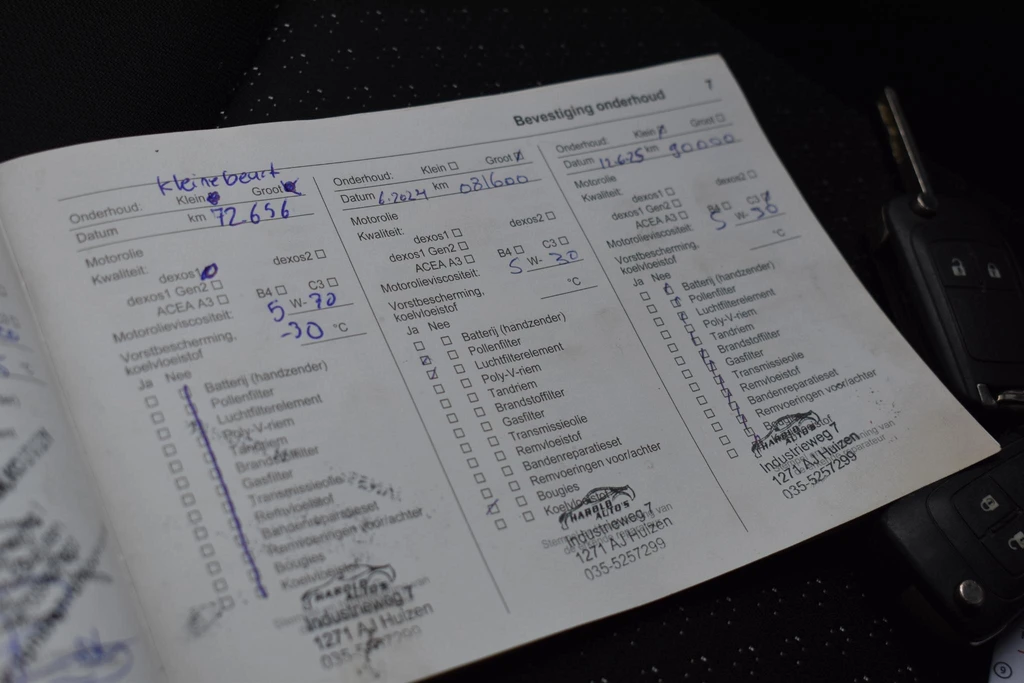 Bevestiging onderhoud 7
kleinebeurt
Onderhoud: Klein Groot
Datum km 72.656
Motorolie
Kwaliteit: dexos1 dexos2
dexos1 Gen2
ACEA A3 B4 C3
Motorolieviscositeit: 5 W- 70
Vorstbescherming,
koelvloeistof -30 °C
Ja Nee
Batterij (handzender)
Pollenfilter
Luchtfilterelement
Poly-V-riem
Tandriem
Brandstoffilter
Gasfilter
Transmissieolie
Remvloeistof
Bandenreparatieset
Remvoeringen voor/achter
Bougies
Koelvloeistof
HAROLD
AUTO'S
Industrieweg 7
1271 AJ Huizen
Onderhoud: Klein Groot
Datum 6.2024 km 081600
Motorolie
Kwaliteit: dexos1 dexos2
dexos1 Gen2
ACEA A3 B4 C3
Motorolieviscositeit: 5 W- 30
Vorstbescherming,
koelvloeistof °C
Ja Nee
Batterij (handzender)
Pollenfilter
Luchtfilterelement
Poly-V-riem
Tandriem
Brandstoffilter
Gasfilter
Transmissieolie
Remvloeistof
Bandenreparatieset
Remvoeringen voor/achter
Bougies
Koelvloeistof
HAROLD
AUTO'S
Industrieweg 7
1271 AJ Huizen
035-5257299
Onderhoud: Klein Groot
Datum 12.6.25 km 90000
Motorolie
Kwaliteit: dexos1 dexos2
dexos1 Gen2
ACEA A3 B4 C3
Motorolieviscositeit: 5 W- 30
Vorstbescherming,
koelvloeistof °C
Ja Nee
Batterij (handzender)
Pollenfilter
Luchtfilterelement
Poly-V-riem
Tandriem
Brandstoffilter
Gasfilter
Transmissieolie
Remvloeistof
Bandenreparatieset
Remvoeringen voor/achter
Bougies
HAROLD
AUTO'S
Industrieweg 7
1271 AJ Huizen
035-5257299